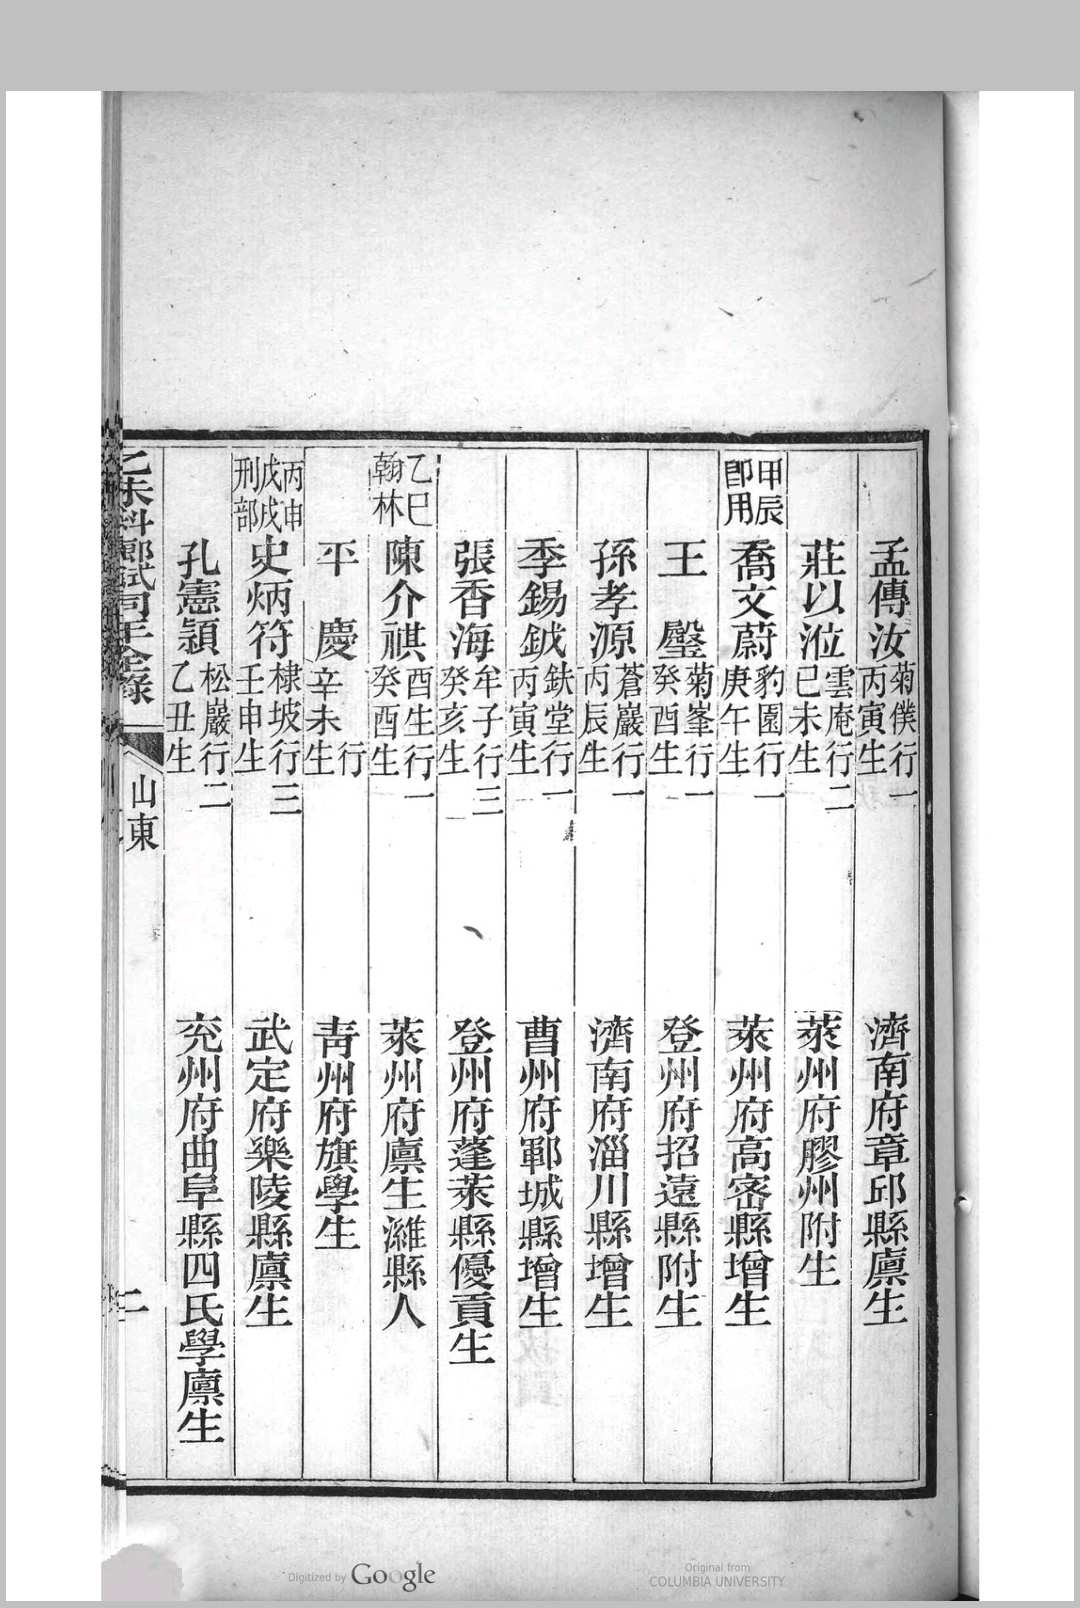 孟傳汝 菊僕行一 丙寅生 濟南府章邱縣廩生
莊以涖 雲庵行二 己未生 萊州府膠州附生
甲辰即用 喬文蔚 豹園行一 庚午生 萊州府高密縣增生
王 菊峯行一 癸酉生 登州府招遠縣附生
孫孝源 蒼巖行一 丙辰生 濟南府淄川縣增生
季錫鉞 鈇堂行一 丙寅生 曹州府鄆城縣增生
張香海 牟子行三 癸亥生 登州府蓬萊縣優貢生
乙巳翰林 陳介祺 酉生行一 癸酉生 萊州府廩生濰縣人
平慶 行 辛未生 青州府旗學生
丙申戊戌刑部 史炳符 棣坡行三 壬申生 武定府樂陵縣廩生
孔憲頴 松巖行二 乙丑生 兖州府曲阜縣四氏學廩生
乙未科鄉試同年全錄 山東 二
Digitized by Google
Original from
COLUMBIA UNIVERSITY